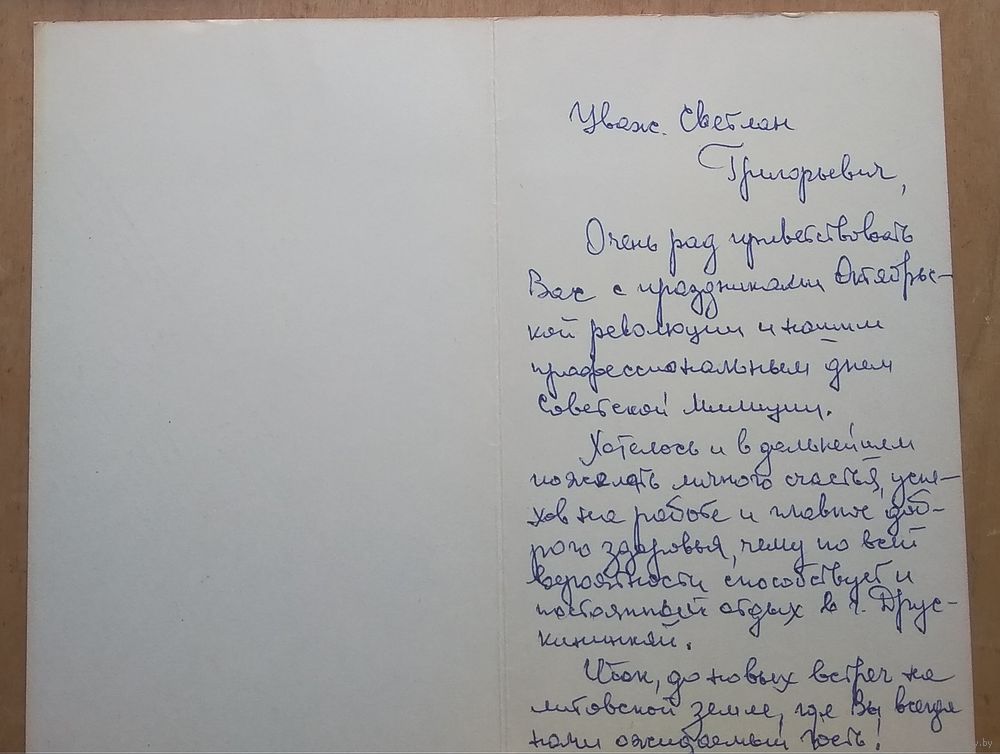 Уваж. Светлан
Григорьевич,
Очень рад приветствовать
Вас с праздниками Октябрьс-
кой революции и нашим
профессиональным днем
Советской Милиции.
Хотелось и в дальнейшем
пожелать личного счастья, успе-
хов на работе и главное доб-
рого здоровья, чему по всей
вероятности способствует и
постоянный отдых в г. Друс-
кининкай.
Итак, до новых встреч на
литовской земле, где Вы всегда
нами ожидаемый гость!